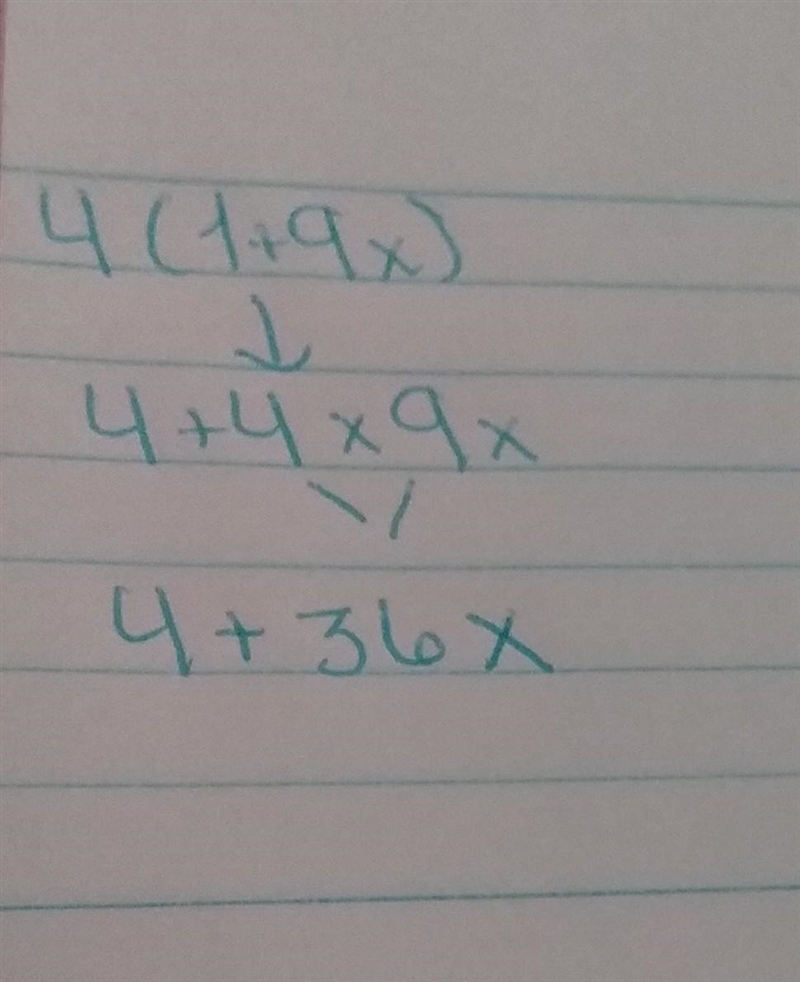 4(1+9x)
↓
4+4×9x
\ /
4+36x